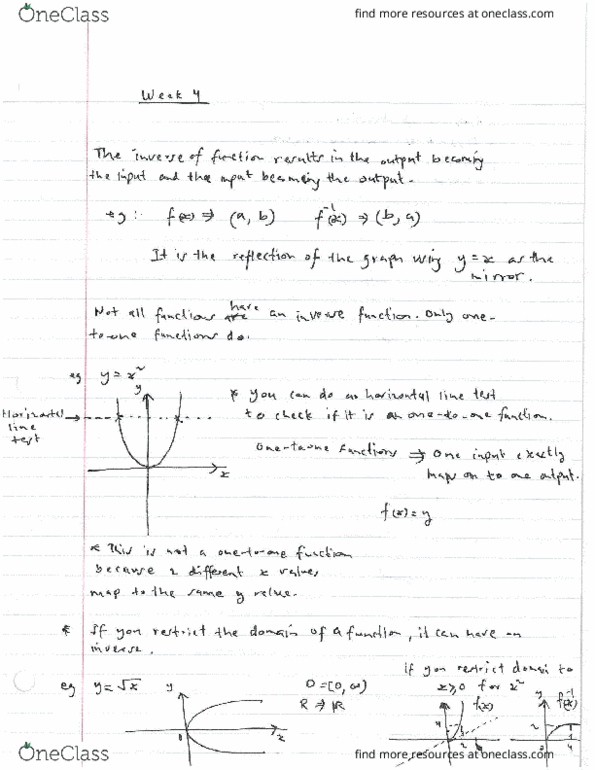 OneClass
find more resources at oneclass.com
Week 4
The inverse of function results in the output becoming
the input and the input becoming the output.
eg :. f(x) ⇒ (a, b) f⁻¹(x) ⇒ (b, a)
It is the reflection of the graph using y = x as the
mirror.
Not all functions have an inverse function. Only one-
to-one functions do.
eg y = x²
y
* You can do an horizontal line test
Horizontal
line
test
to check if it is an one-to-one function.
One-to-one functions ⇒ One input exactly
maps on to one output.
x
f(x) = y
* This is not a one-to-one function
because 2 different x values
map to the same y value.
* If you restrict the domain of a function, it can have an
inverse.
if you restrict domain to
x≥0 for x²
eg y = √x
y
x
0
D = [0, ∞)
R ⇒ ℝ
f(x)
4
2
y
f⁻¹(x)
2
4
OneClass
find more resources at oneclass.com